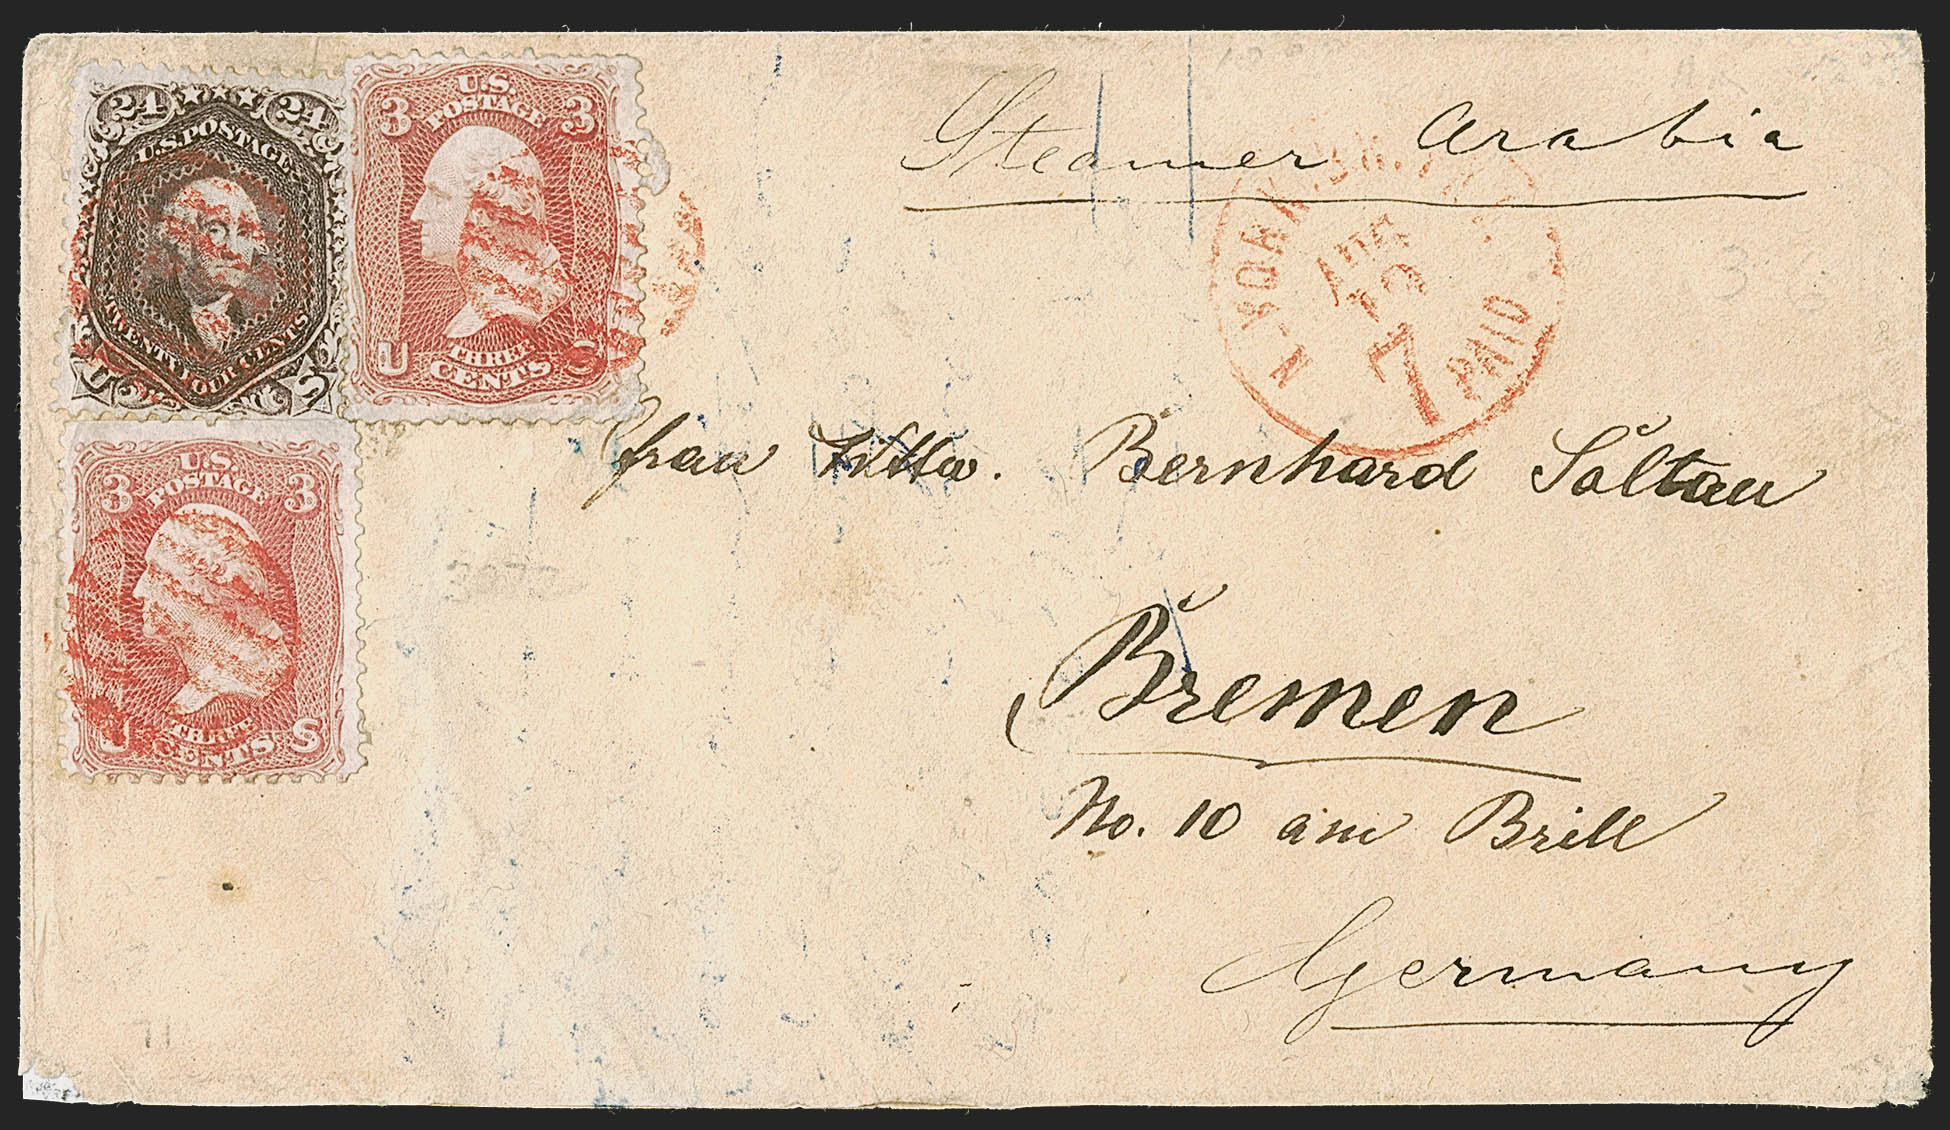 Steamer Arabia
24 24
U.S. POSTAGE
TWENTY FOUR CENTS
U S
3 3
U.S.
POSTAGE
THREE
CENTS
U S
N-YORK
12
7
PAID
36
frau Wttw. Bernhard Saltau
3 3
U.S.
POSTAGE
THREE
CENTS
U S
Bremen
No. 10 am Brill
Germany